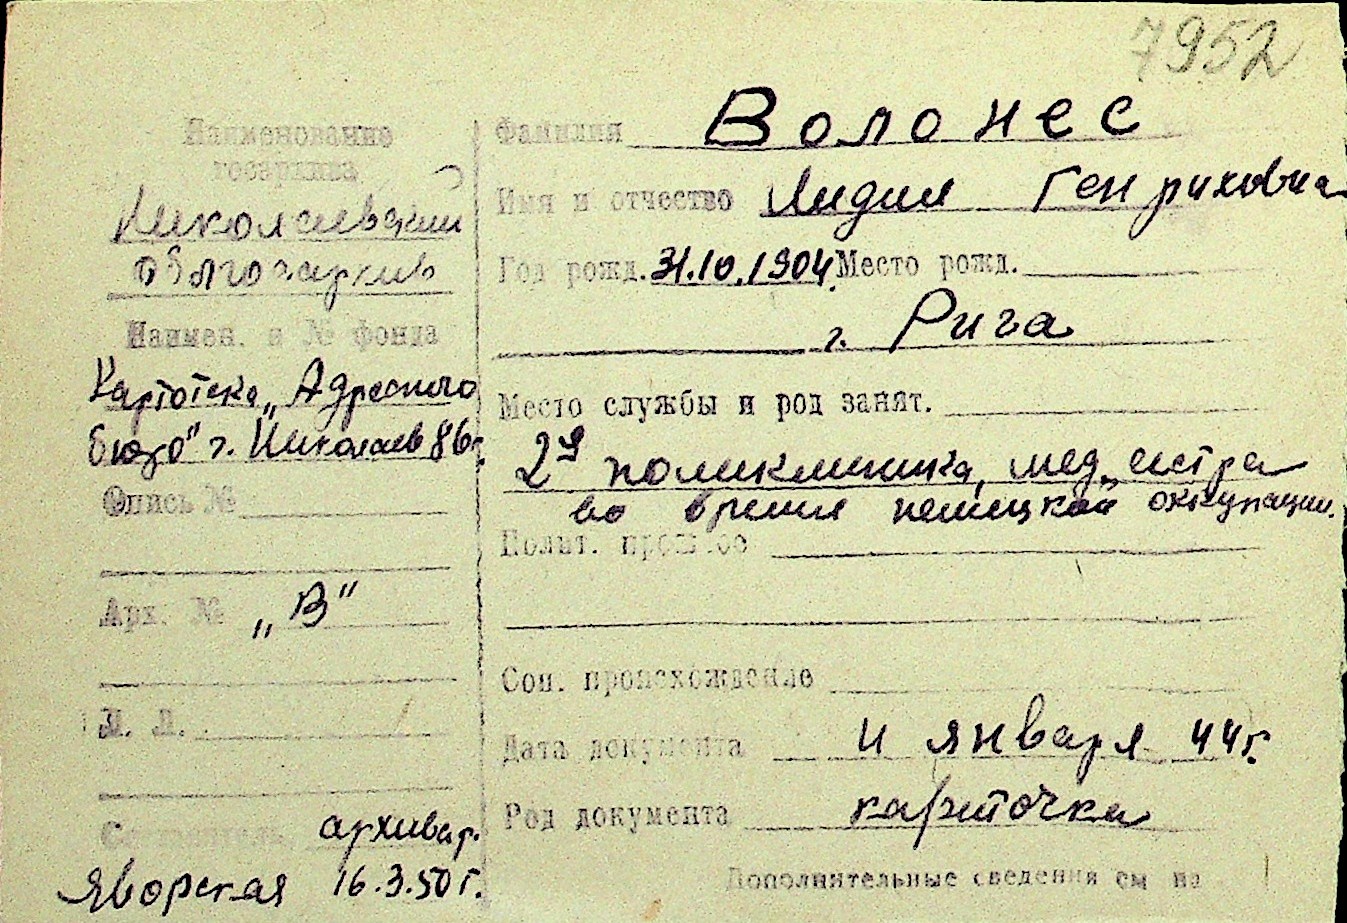 7952
Наименование
госархива
Николаевский
облгосархив
Наимен. и № фонда
Картотека „Адресного
бюро" г. Николаев
Опись №
Арх. № „В"
Л. Л.
Составитель архивар.
Яворская 16.3.50 г.
Фамилия Волонес
Имя и отчество Лидия Генриховна
Год рожд. 31.10.1904 Место рожд.
г. Рига
Место службы и род занят.
2я поликлиника, мед. систра
во время немецкой оккупации.
Полит. прошлое
Соц. происхождение
Дата документа 11 января 44 г.
Род документа карточка
Дополнительные сведения см на